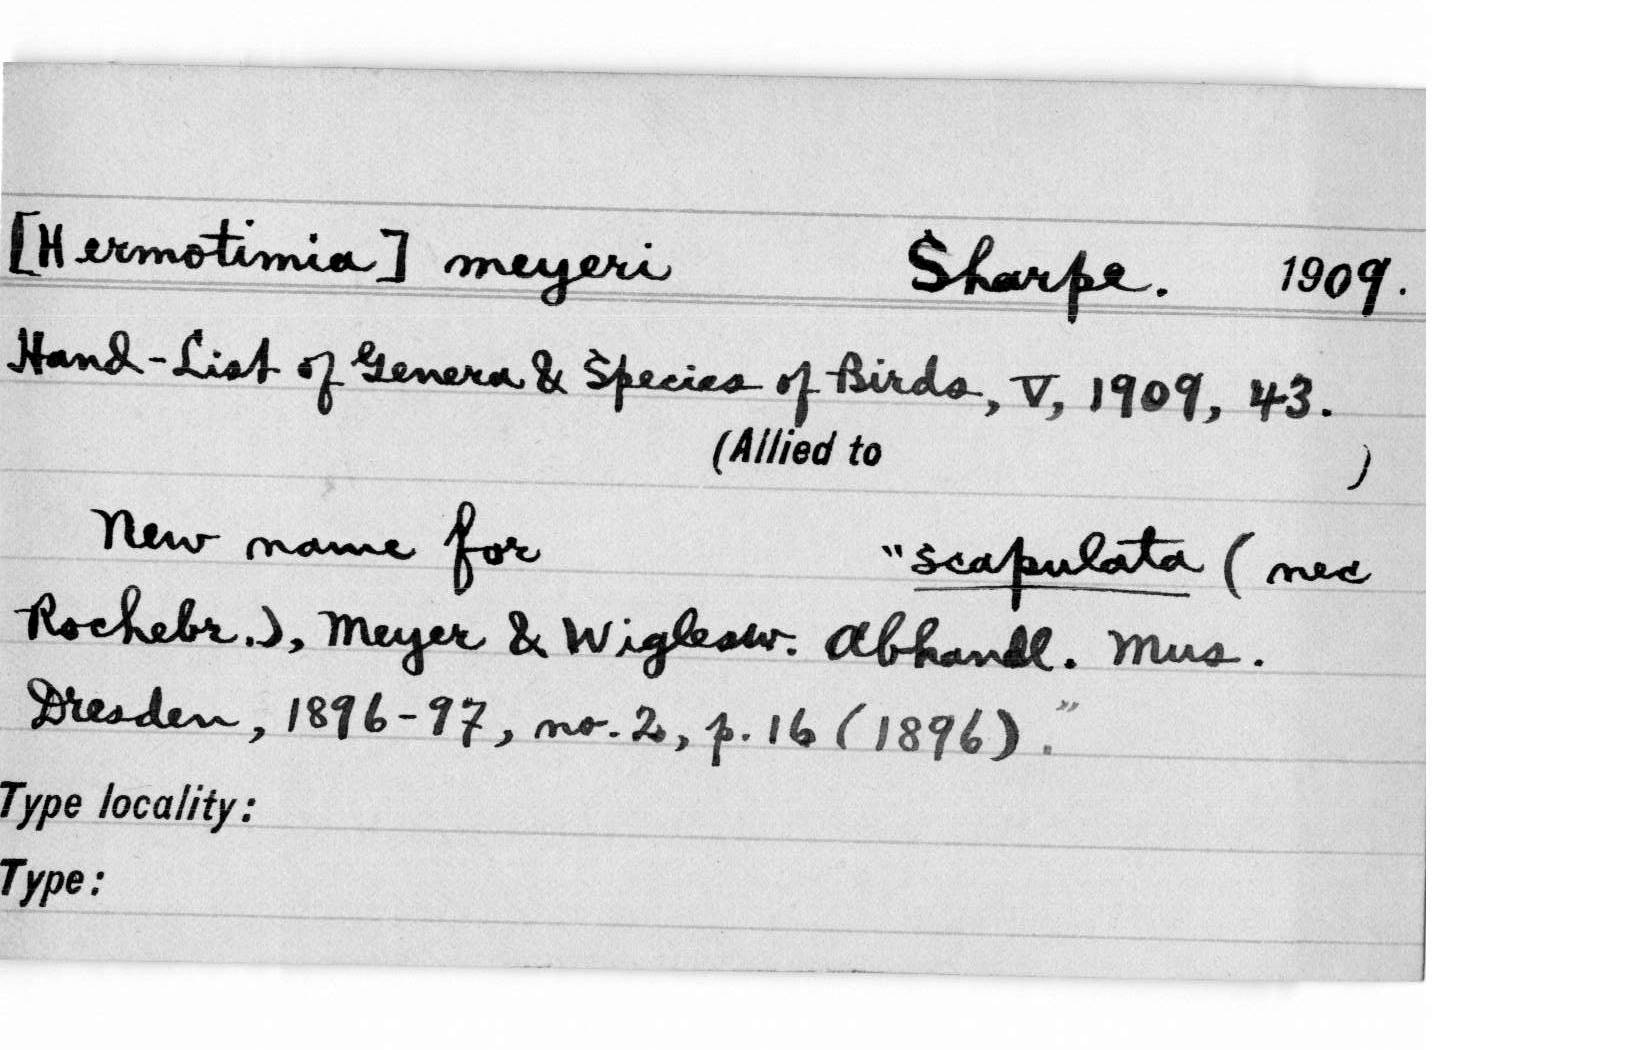 [Hermotimia] meyeri Sharpe. 1909.
Hand-List of Genera & Species of Birds, V, 1909, 43.
(Allied to )
New name for "scapulata (nec
Rochebr.), Meyer & Wiglesw. Abhandl. Mus.
Dresden, 1896-97, no. 2, p. 16 (1896)."
Type locality:
Type: